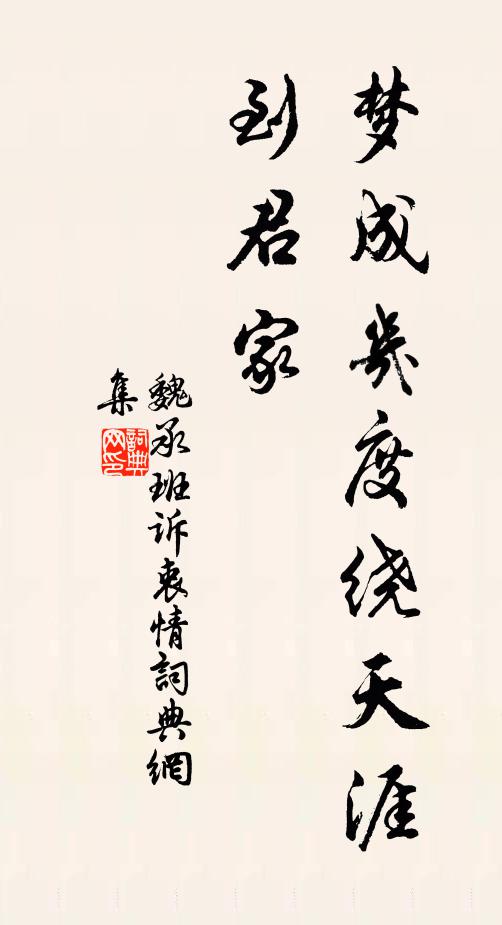 梦成幾度绕天涯
到君家
魏承班诉衷情詞典網
集
詞典网印